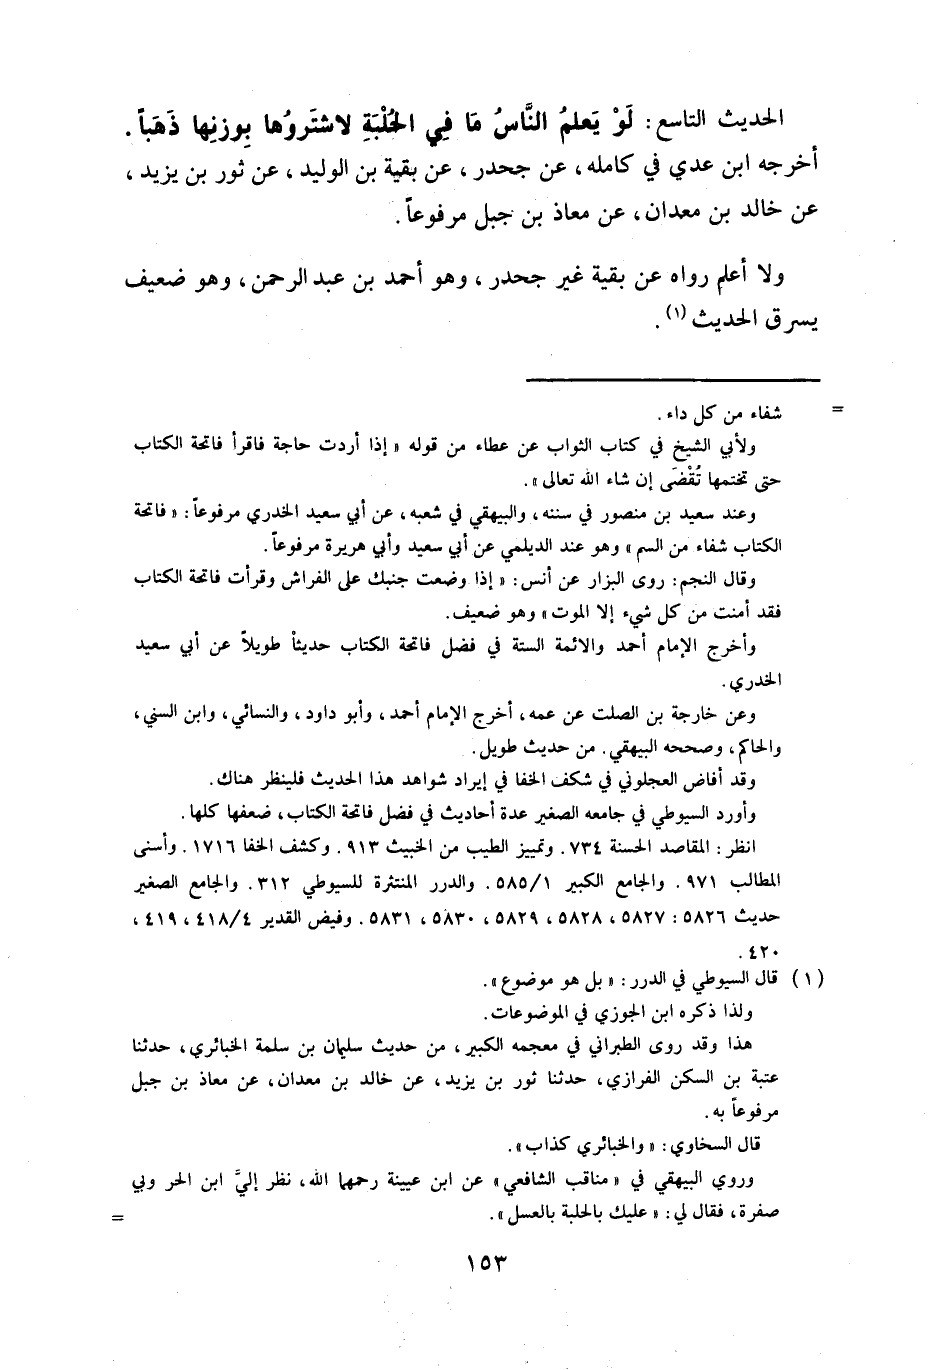 الحديث التاسع: لَوْ يَعلمُ النَّاسُ مَا فِي الحُلْبَةِ لاشتَروُها بِوزنِها ذَهَباً.
أخرجه ابن عدي في كامله، عن جحدر، عن بقية بن الوليد، عن ثور بن يزيد،
عن خالد بن معدان، عن معاذ بن جبل مرفوعاً.
ولا أعلم رواه عن بقية غير جحدر، وهو أحمد بن عبد الرحمن، وهو ضعيف
يسرق الحديث (١).
= شفاء من كل داء.
ولأبي الشيخ في كتاب الثواب عن عطاء من قوله « إذا أردت حاجة فاقرأ فاتحة الكتاب
حتى تختمها تُقْضَى إن شاء الله تعالى ».
وعند سعيد بن منصور في سننه، والبيهقي في شعبه، عن أبي سعيد الخدري مرفوعاً: « فاتحة
الكتاب شفاء من السم » وهو عند الديلمي عن أبي سعيد وأبي هريرة مرفوعاً.
وقال النجم: روى البزار عن أنس: « إذا وضعت جنبك على الفراش وقرأت فاتحة الكتاب
فقد أمنت من كل شيء إلا الموت » وهو ضعيف.
وأخرج الإمام أحمد والائمة الستة في فضل فاتحة الكتاب حديثاً طويلاً عن أبي سعيد
الخدري.
وعن خارجة بن الصلت عن عمه، أخرج الإمام أحمد، وأبو داود، والنسائي، وابن السني،
والحاكم، وصححه البيهقي. من حديث طويل.
وقد أفاض العجلوني في شكف الخفا في إيراد شواهد هذا الحديث فلينظر هناك.
وأورد السيوطي في جامعه الصغير عدة أحاديث في فضل فاتحة الكتاب، ضعفها كلها.
انظر: المقاصد الحسنة ٧٣٤. وتمييز الطيب من الخبيث ٩١٣. وكشف الخفا ١٧١٦. وأسنى
المطالب ٩٧١. والجامع الكبير ٥٨٥/١. والدرر المنتثرة للسيوطي ٣١٢. والجامع الصغير
حديث ٥٨٢٦: ٥٨٢٧، ٥٨٢٨، ٥٨٢٩، ٥٨٣٠، ٥٨٣١. وفيض القدير ٤١٨/٤، ٤١٩،
٤٢٠.
(١) قال السيوطي في الدرر: « بل هو موضوع ».
ولذا ذكره ابن الجوزي في الموضوعات.
هذا وقد روى الطبراني في معجمه الكبير، من حديث سليمان بن سلمة الخبائري، حدثنا
عتبة بن السكن الفرازي، حدثنا ثور بن يزيد، عن خالد بن معدان، عن معاذ بن جبل
مرفوعاً به.
قال السخاوي: « والخبائري كذاب ».
وروي البيهقي في « مناقب الشافعي » عن ابن عيينة رحمهما الله، نظر إليَّ ابن الحر وبي
صفرة، فقال لي: « عليك بالحلبة بالعسل ». =
١٥٣